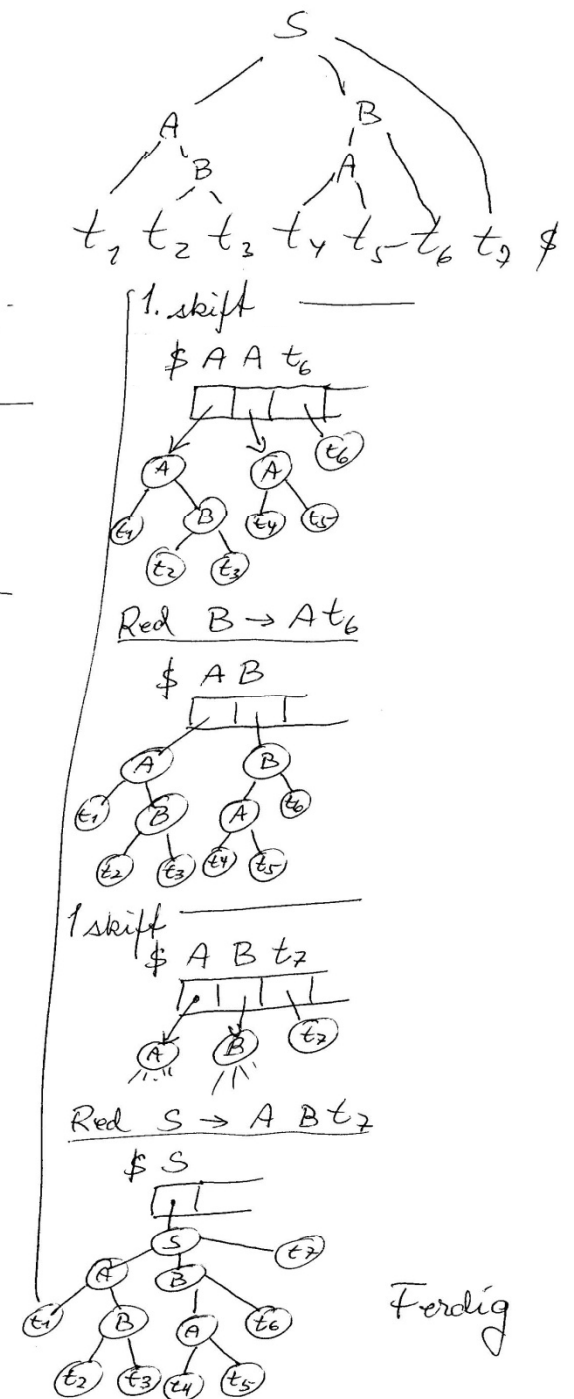 S
A B
B A
t₁ t₂ t₃ t₄ t₅ t₆ t₇ $
1. skift
$ A A t₆
A A t₆
t₁ B t₄ t₅
t₂ t₃
Red B → A t₆
$ A B
A B
t₁ B A t₆
t₂ t₃ t₄ t₅
1 skift
$ A B t₇
A B t₇
Red S → A B t₇
$ S
S t₇
A B
t₁ B A t₆
t₂ t₃ t₄ t₅
Ferdig